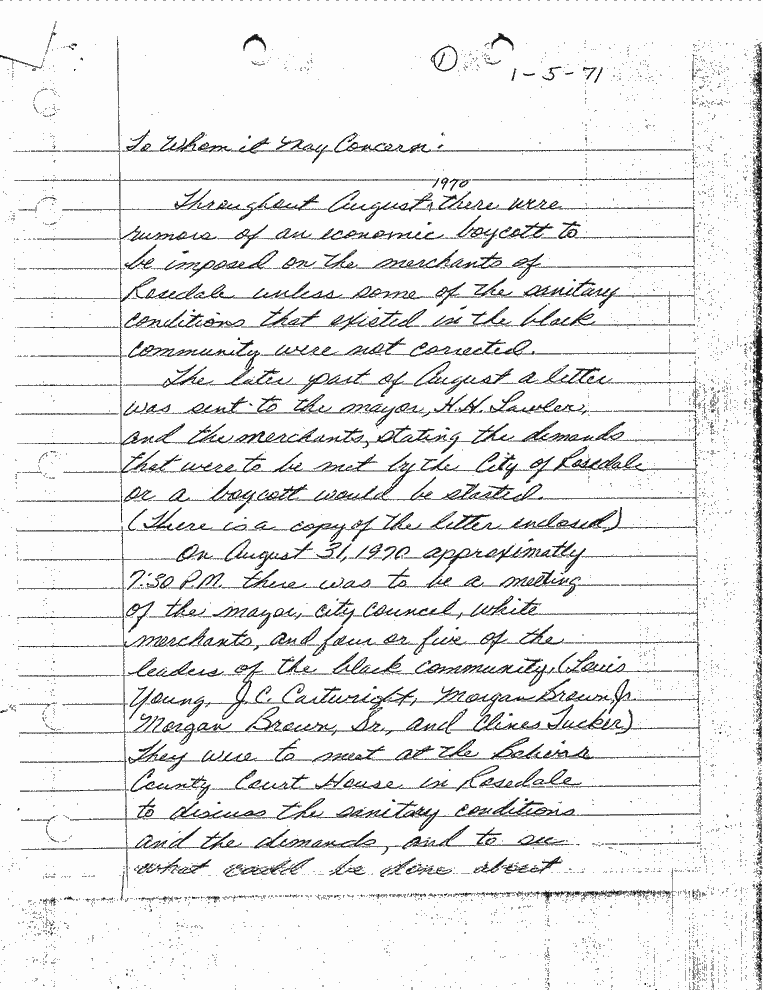 ①
1-5-71
To Whom it May Concern:
1970
Throughout August, there were
rumors of an economic boycott to
be imposed on the merchants of
Rosedale unless some of the sanitary
conditions that existed in the black
community were not corrected.
The later part of August a letter
was sent to the mayor, H.H. Lawler,
and the merchants, stating the demands
that were to be met by the City of Rosedale
or a boycott would be started.
(There is a copy of the letter enclosed)
On August 31, 1970 approximatly
7:30 P.M. there was to be a meeting
of the mayor, city council, white
merchants, and four or five of the
leaders of the black community, (Louis
Young, J.C. Cartwright, Morgan Brown, Jr.
Morgan Brown, Sr., and Clines Tucker)
They were to meet at the Bolivar
County Court House in Rosedale
to discuss the sanitary conditions
and the demands, and to see
what could be done about